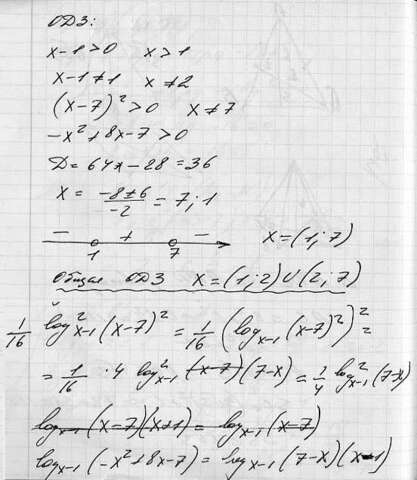 ОДЗ:
x-1>0 x>1
x-1≠1 x≠2
(x-7)²>0 x≠7
-x²+8x-7>0
D=64-28=36
x = (-8±6)/(-2) = 7; 1
- + -
1 7 x=(1;7)
Общая ОДЗ x=(1;2)∪(2;7)
1/16 log²ₓ₋₁(x-7)² = 1/16 (logₓ₋₁(x-7)²)² =
= 1/16 · 4 log²ₓ₋₁ (x-7)(7-x) = 1/4 log²ₓ₋₁(7-x)
logₓ₋₁(x-7)(x+1) = logₓ₋₁(x-7)
logₓ₋₁(-x²+8x-7) = logₓ₋₁(7-x)(x-1)